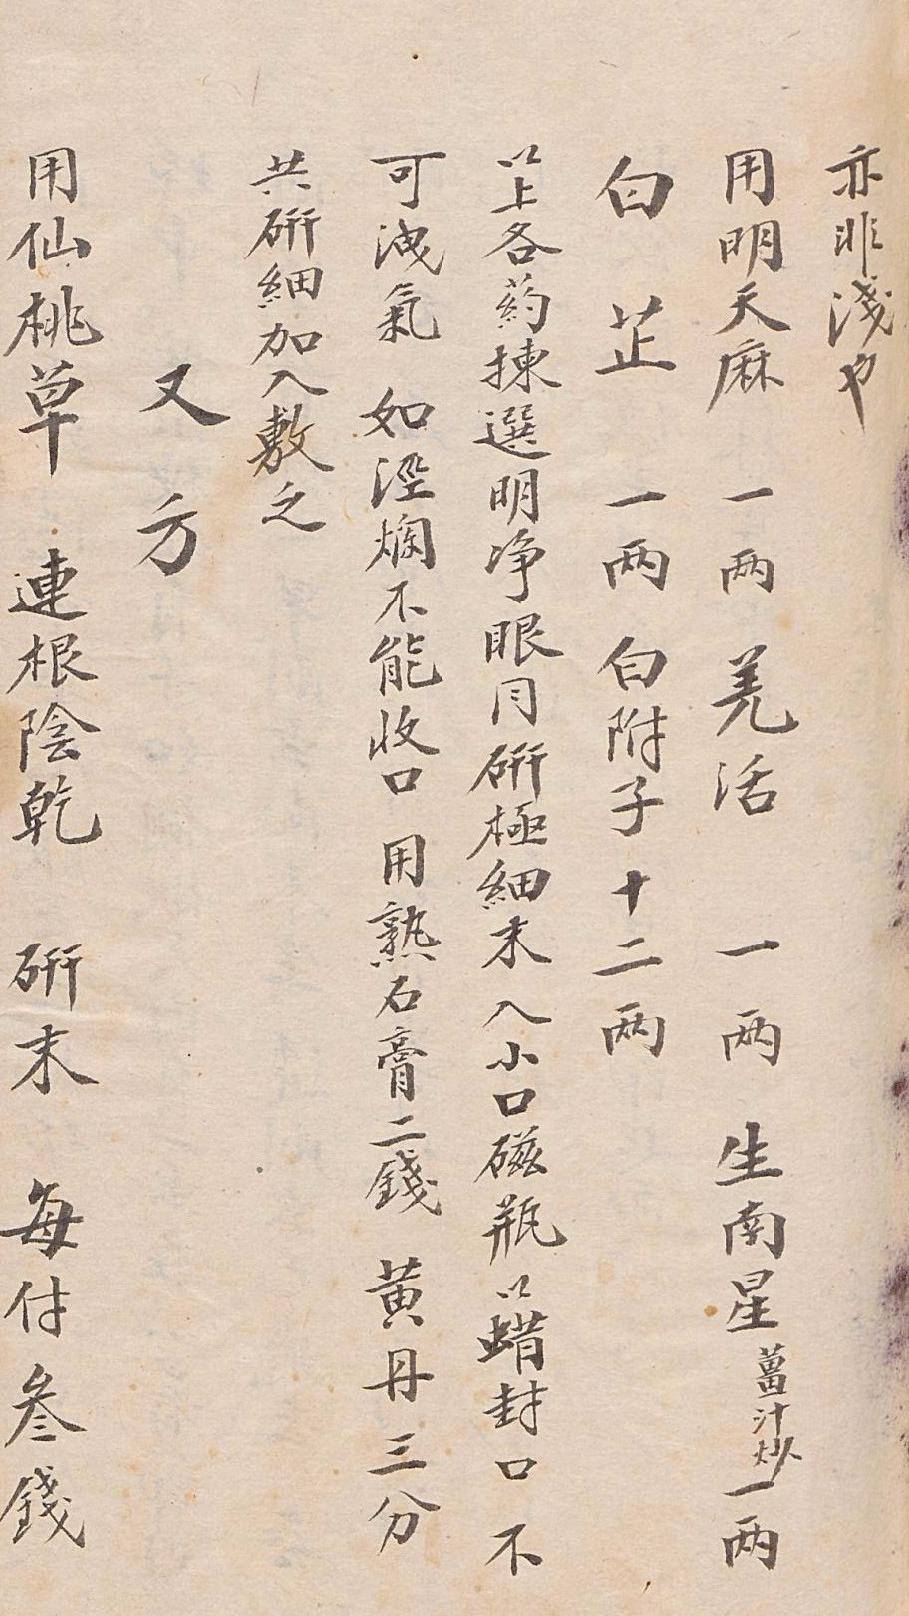 亦非淺也
用明天麻 一两 羌活 一两 生南星 薑汁炒 一两
白芷 一两 白附子 十二两
以上各葯揀選明净眼同研極細末入小口磁瓶以蜡封口不
可洩氣 如溼爛不能收口 用熟石膏二錢 黄丹三分
共研細加入敷之
又方
用仙桃草 連根陰乾 研末 每付叁錢